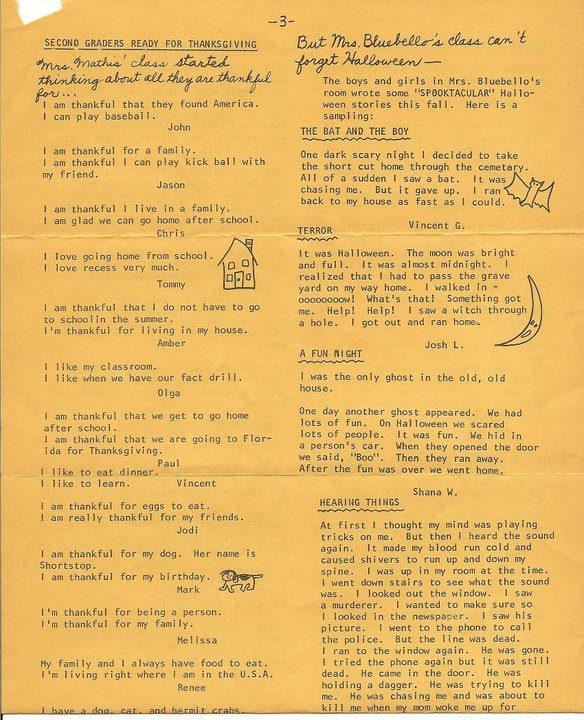 -3-
SECOND GRADERS READY FOR THANKSGIVING
Mrs. Mathis' class started
thinking about all they are thankful
for...
I am thankful that they found America.
I can play baseball.
John
I am thankful for a family.
I am thankful I can play kick ball with
my friend.
Jason
I am thankful I live in a family.
I am glad we can go home after school.
Chris
I love going home from school.
I love recess very much.
Tommy
I am thankful that I do not have to go
to schoolin the summer.
I'm thankful for living in my house.
Amber
I like my classroom.
I like when we have our fact drill.
Olga
I am thankful that we get to go home
after school.
I am thankful that we are going to Flor-
ida for Thanksgiving.
Paul
I like to eat dinner.
I like to learn. Vincent
I am thankful for eggs to eat.
I am really thankful for my friends.
Jodi
I am thankful for my dog. Her name is
Shortstop.
I am thankful for my birthday.
Mark
I'm thankful for being a person.
I'm thankful for my family.
Melissa
My family and I always have food to eat.
I'm living right where I am in the U.S.A.
Renee
I have a dog, cat, and hermit crabs.
But Mrs. Bluebello's class can't
forget Halloween—
The boys and girls in Mrs. Bluebello's
room wrote some "SPOOKTACULAR" Hallo-
ween stories this fall. Here is a
sampling:
THE BAT AND THE BOY
One dark scary night I decided to take
the short cut home through the cemetary.
All of a sudden I saw a bat. It was
chasing me. But it gave up. I ran
back to my house as fast as I could.
Vincent G.
TERROR
It was Halloween. The moon was bright
and full. It was almost midnight. I
realized that I had to pass the grave
yard on my way home. I walked in -
oooooooow! What's that! Something got
me. Help! Help! I saw a witch through
a hole. I got out and ran home.
Josh L.
A FUN NIGHT
I was the only ghost in the old, old
house.
One day another ghost appeared. We had
lots of fun. On Halloween we scared
lots of people. It was fun. We hid in
a person's car. When they opened the door
we said, "Boo". Then they ran away.
After the fun was over we went home.
Shana W.
HEARING THINGS
At first I thought my mind was playing
tricks on me. But then I heard the sound
again. It made my blood run cold and
caused shivers to run up and down my
spine. I was up in my room at the time.
I went down stairs to see what the sound
was. I looked out the window. I saw
a murderer. I wanted to make sure so
I looked in the newspaper. I saw his
picture. I went to the phone to call
the police. But the line was dead.
I ran to the window again. He was gone.
I tried the phone again but it was still
dead. He came in the door. He was
holding a dagger. He was trying to kill
me. He was chasing me and was about to
kill me when my mom woke me up for